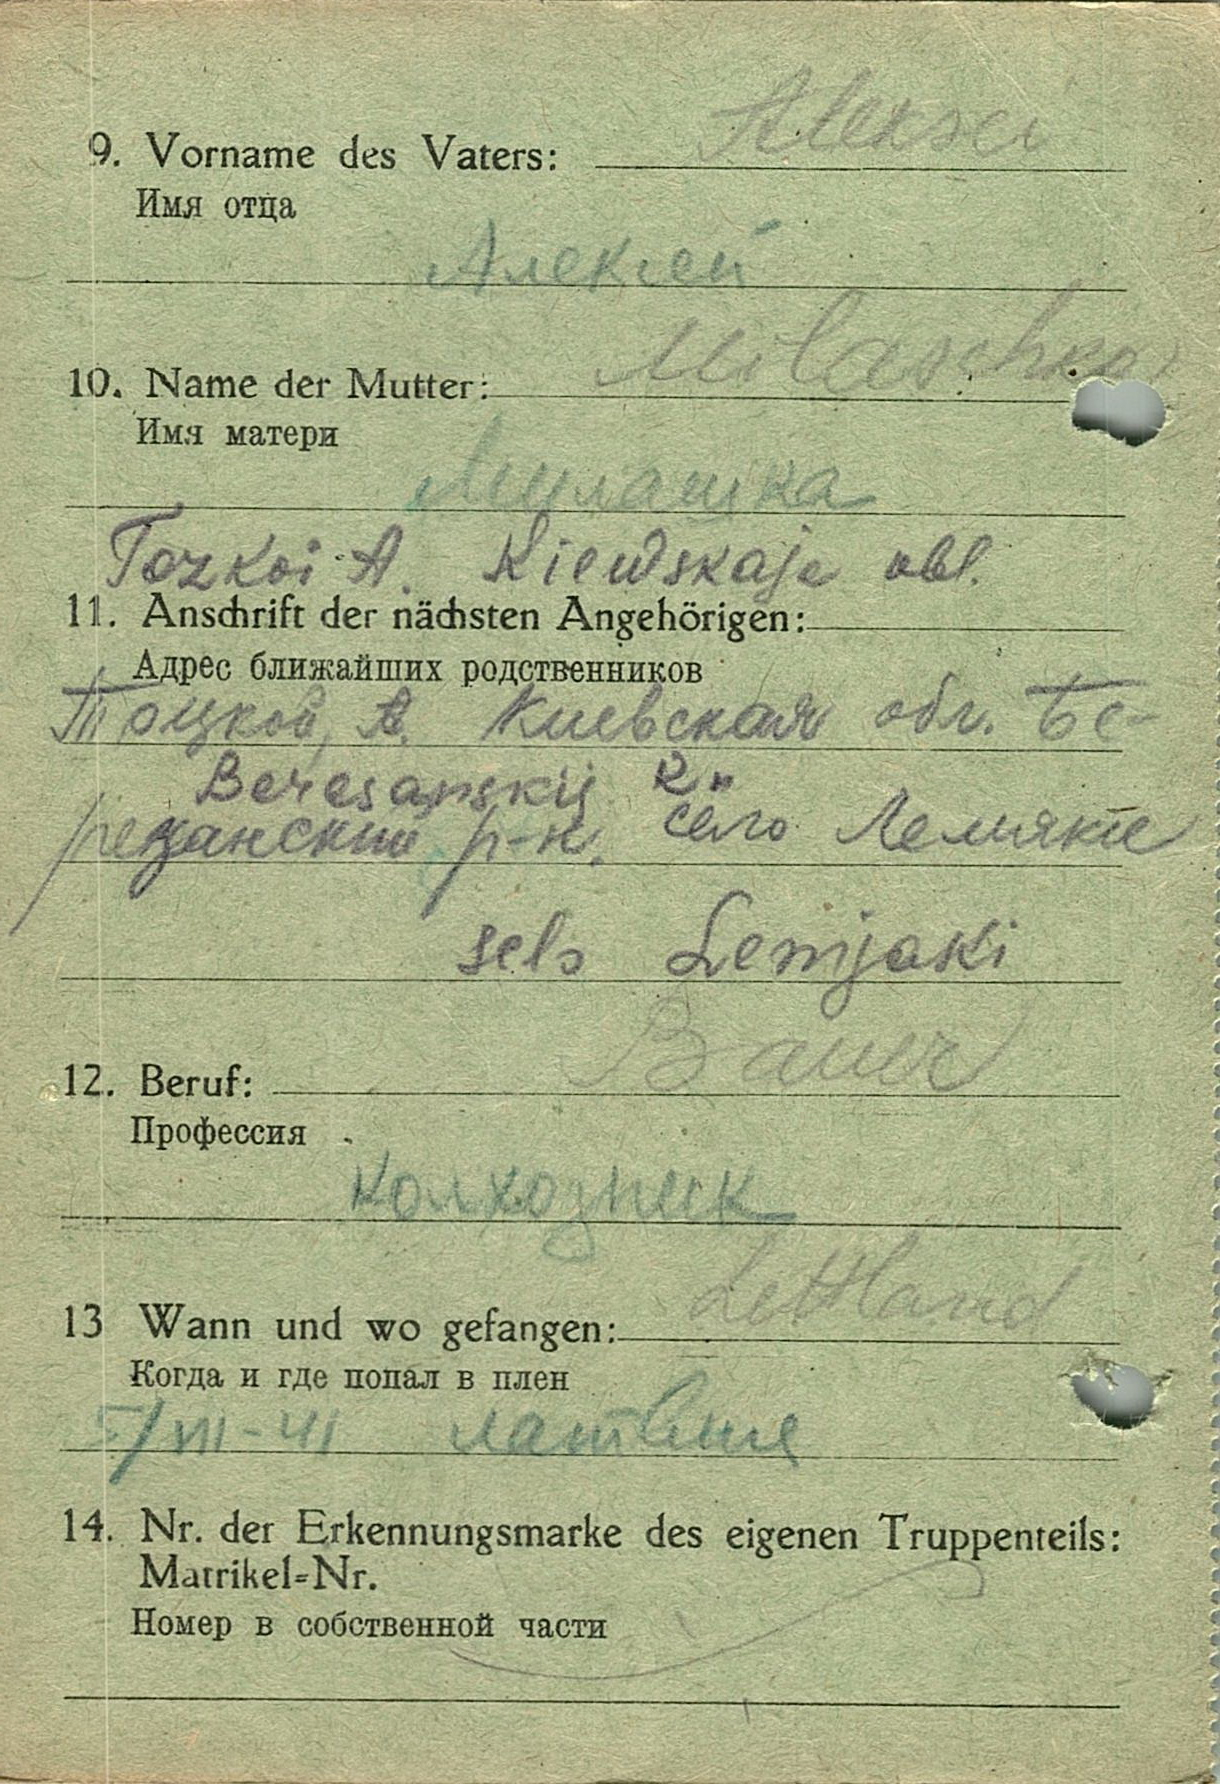 Alexsei
9. Vorname des Vaters:
Имя отца
Алексей
Milaschka
10. Name der Mutter:
Имя матери
Милашка
Tozkoi A. Kiewskaje obl.
11. Anschrift der nächsten Angehörigen:
Адрес ближайших родственников
Тоцкой, А. Киевская обл. Бе-
Beresanskij R.
резанский р-н. село Лемяки
selo Lemjaki
Bauer
12. Beruf:
Профессия
колхозник
Lettland
13 Wann und wo gefangen:
Когда и где попал в плен
5/VII-41 латвия
14. Nr. der Erkennungsmarke des eigenen Truppenteils:
Matrikel-Nr.
Номер в собственной части